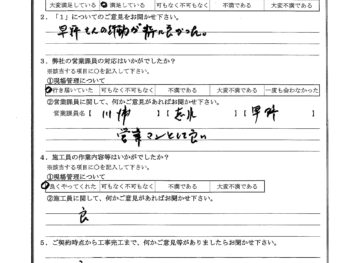 大変満足している 満足している 可もなく不可もなく 不満である 大変不満である
2.「1」についてのご意見をお聞かせ下さい。
早野さんの行動が特に良かった。
3. 弊社の営業課員の対応はいかがでしたか?
※該当する項目に○を記入して下さい。
①現場管理について
行き届いていた 可もなく不可もなく 不満である 大変不満である 一度も会わなかった
②営業課員に関して、何かご意見があればお聞かせ下さい。
営業課員名【 】【 】【早野】
営業マンとして良い
4. 施工員の作業内容等はいかがでしたか?
※該当する項目に○を記入して下さい。
①現場管理について
良くやってくれた 可もなく不可もなく 不満である 大変不満である
②施工員に関して、何かご意見があればお聞かせ下さい。
良
5. ご契約時点から工事完工まで、何かご意見等がありましたらお聞かせ下さい。